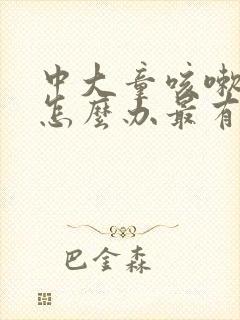 中大童咳嗽
怎麼办最有
巴金森